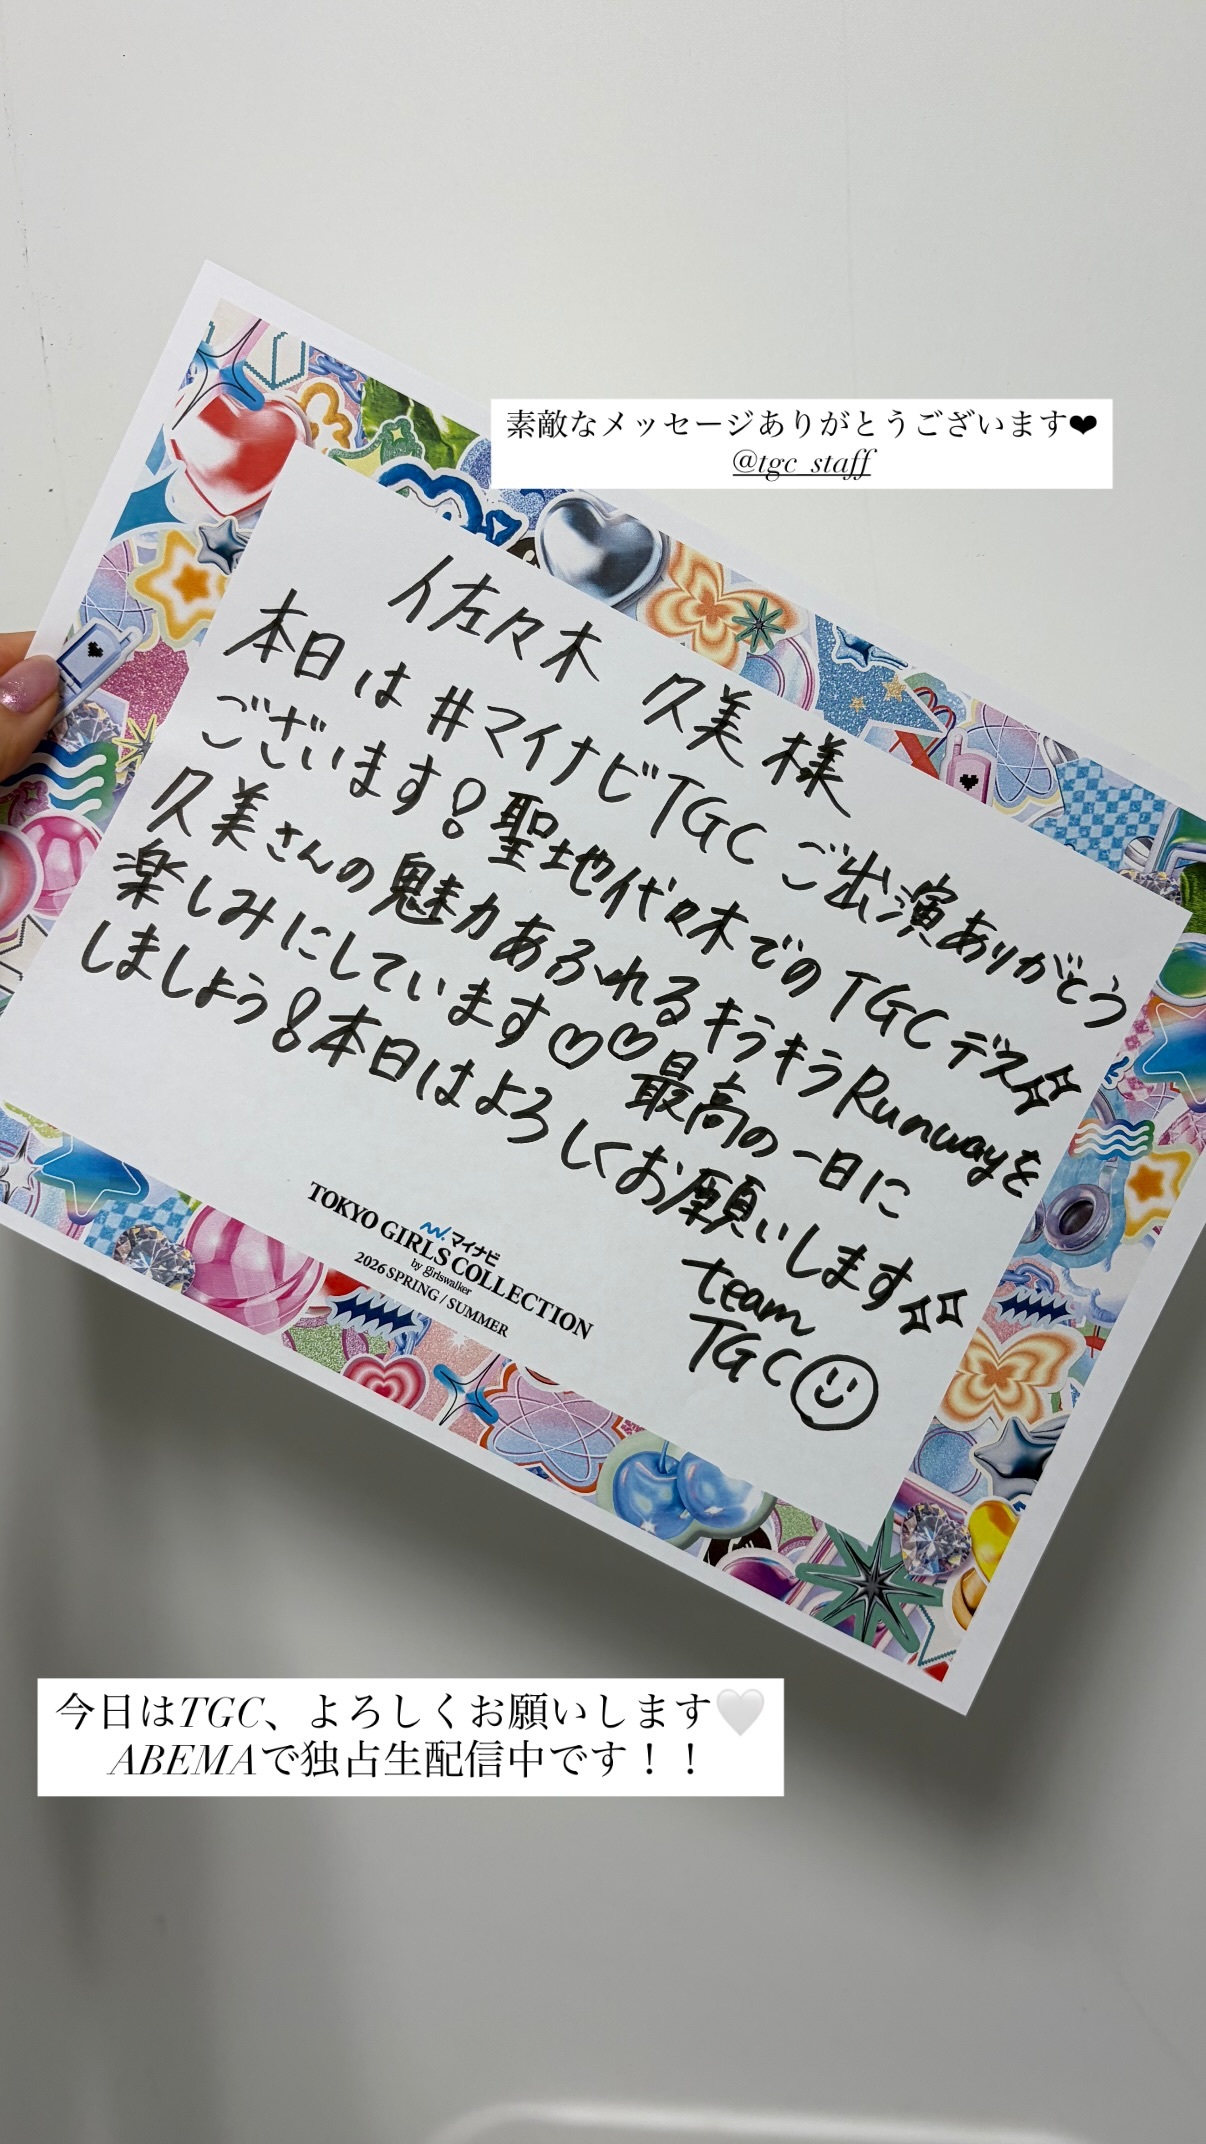 素敵なメッセージありがとうございます❤
@tgc_staff
佐々木 久美 様
本日は #マイナビTGC ご出演ありがとう
ございます!聖地代々木でのTGCデス✨
久美さんの魅力あふれるキラキラRunwayを
楽しみにしています♡♡最高の一日に
しましょう!本日はよろしくお願いします✨
team
TGC☺
マイナビ
TOKYO GIRLS COLLECTION
by girlswalker
2026 SPRING / SUMMER
今日はTGC、よろしくお願いします🤍
ABEMAで独占生配信中です！！